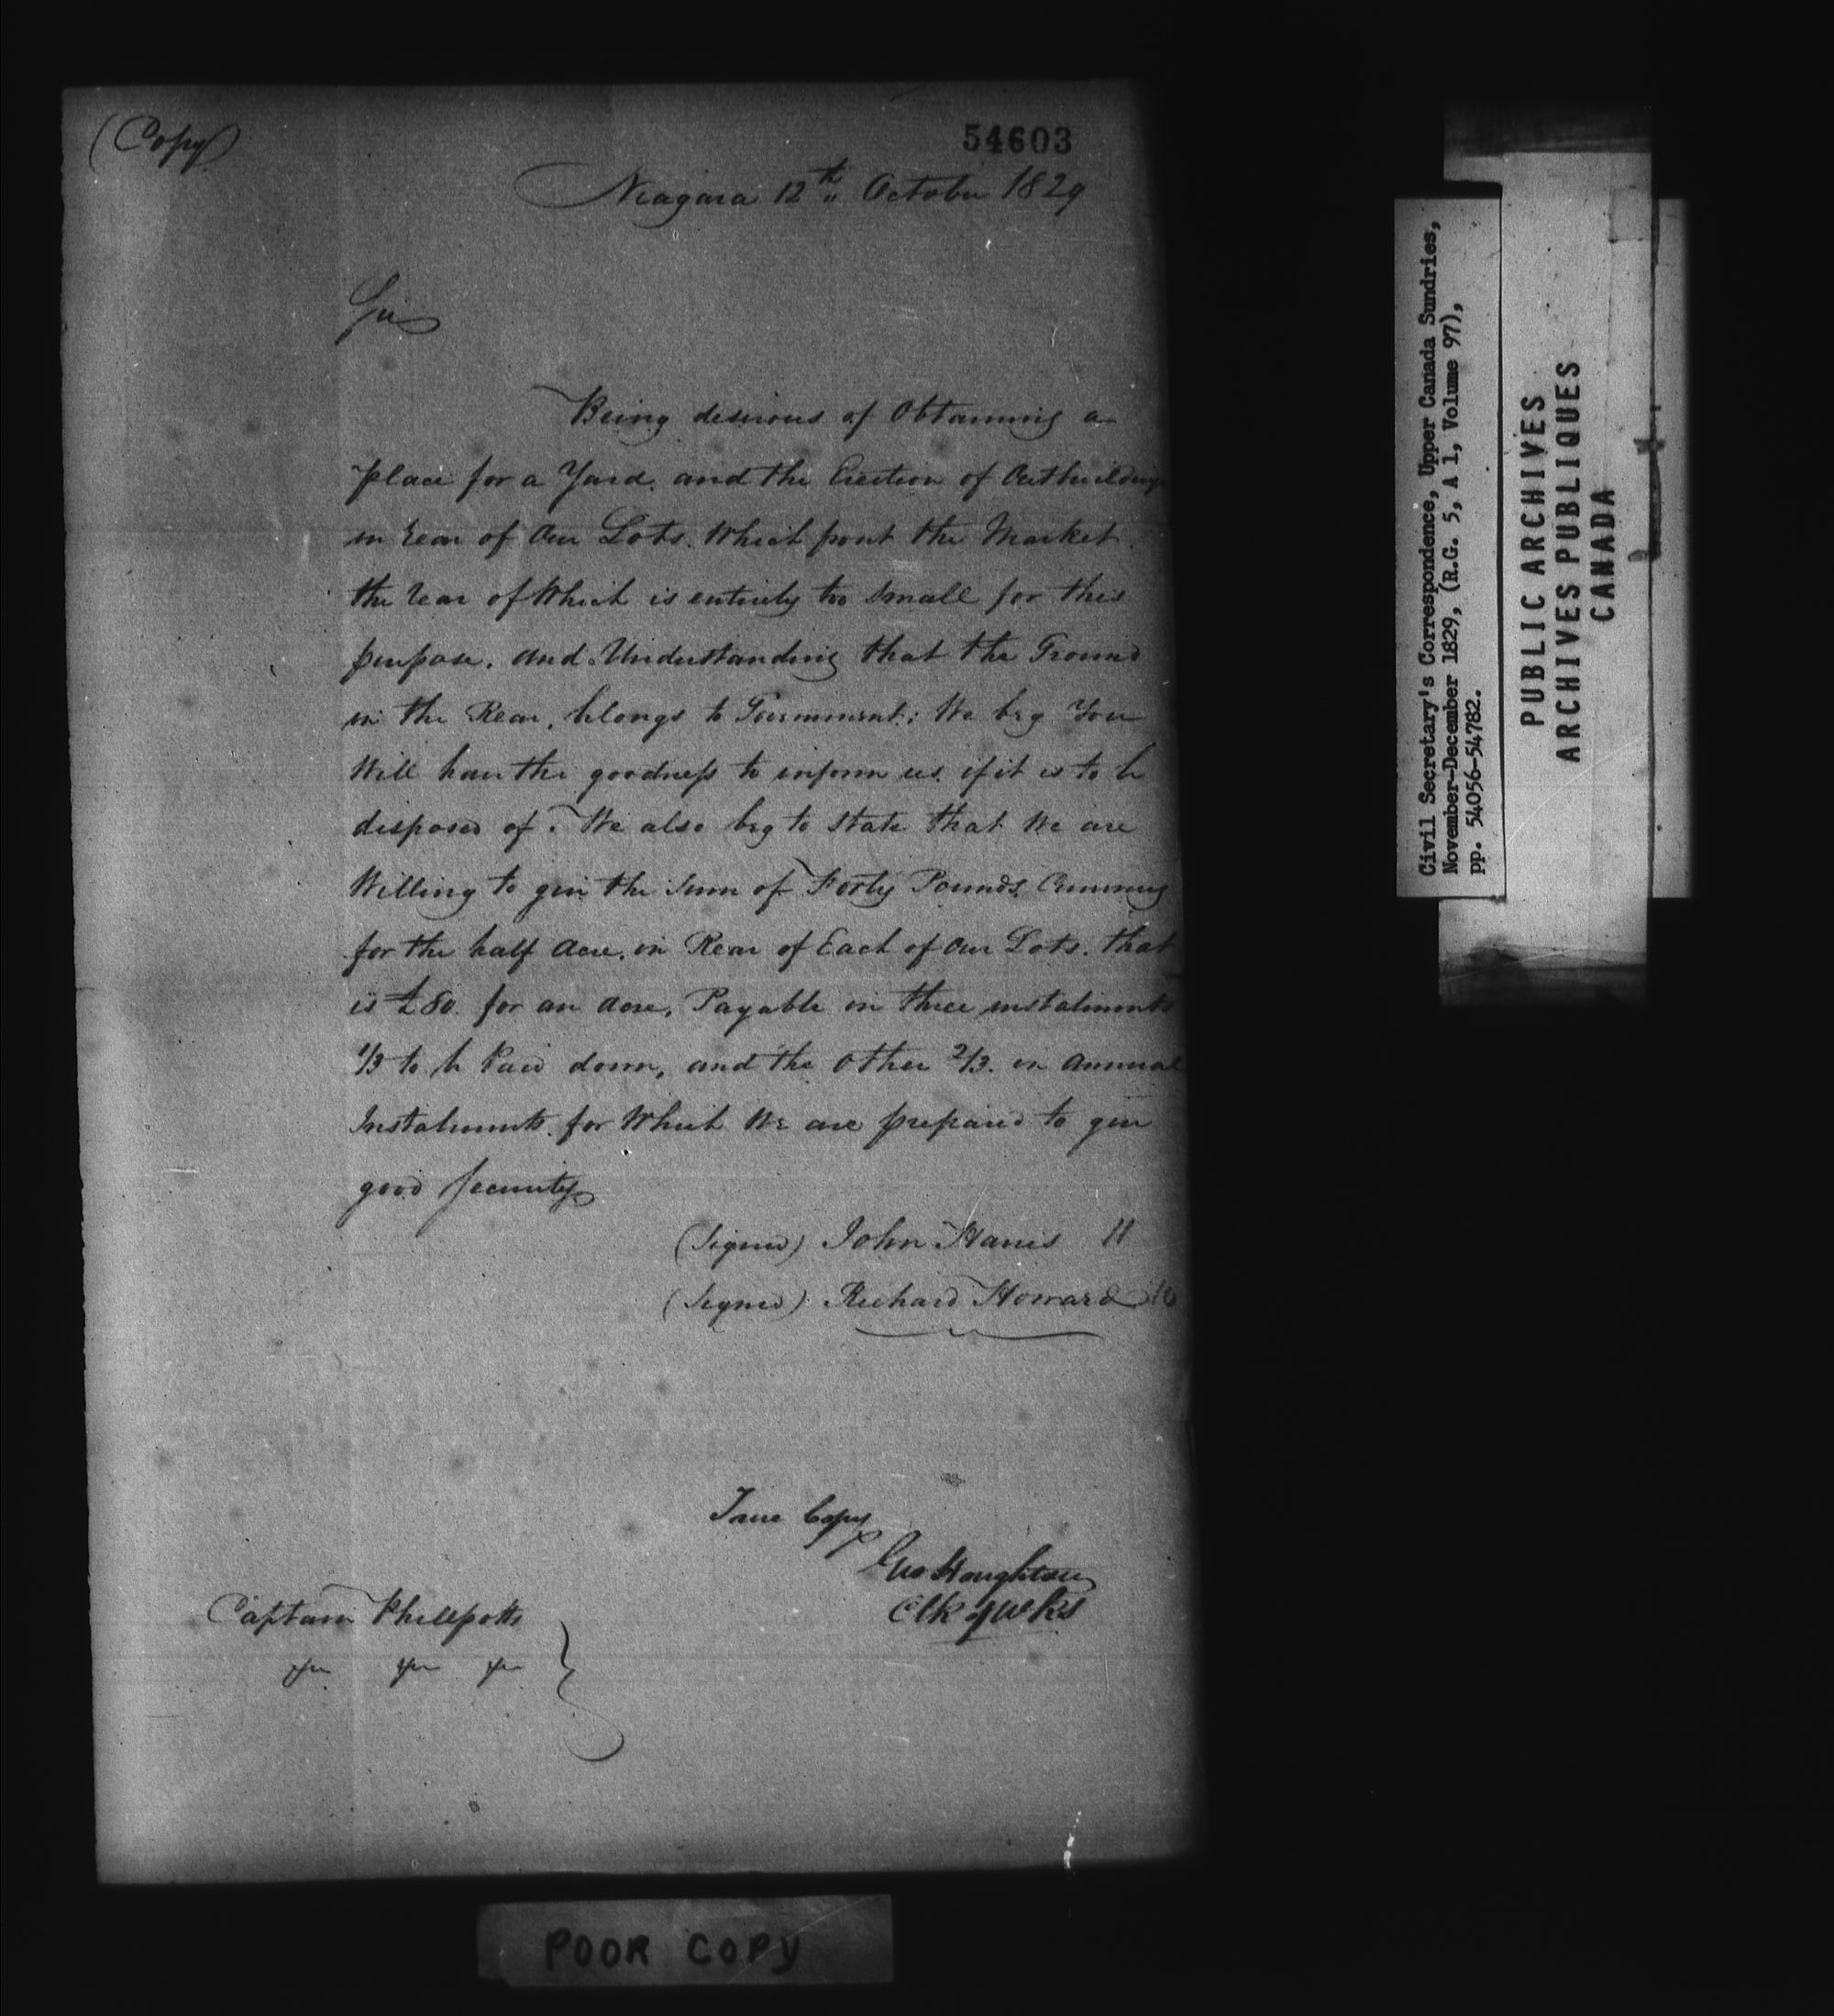 (Copy)
54603
Niagara 12th October 1829
Sir
Being desirous of Obtaining a
place for a Yard. and the Erection of Outbuildings
in rear of Our Lots. Which front the Market.
the rear of Which is entirely too small for this
purpose. and Understanding that the Ground
in the Rear, belongs to Government; We beg You
Will have the goodness to inform us. if it is to be
disposed of. We also beg to state that We are
Willing to give the Sum of Forty Pounds Currency
for the half acre. in Rear of Each of Our Lots. that
is £80. for an acre, Payable in three instalments
1/3 to be Paid down, and the Other 2/3. in annual
Instalments. for Which We are prepared to give
good Security
(Signed) John Harris 11
(Signed) Richard Howard 10
True Copy
Geo Houghton
Clk of Wks
Captain Phillpotts
Civil Secretary's Correspondence, Upper Canada Sundries,
November-December 1829, (R.G. 5, A 1, Volume 97),
pp. 54056-54782.
PUBLIC ARCHIVES
ARCHIVES PUBLIQUES
CANADA
POOR COPY